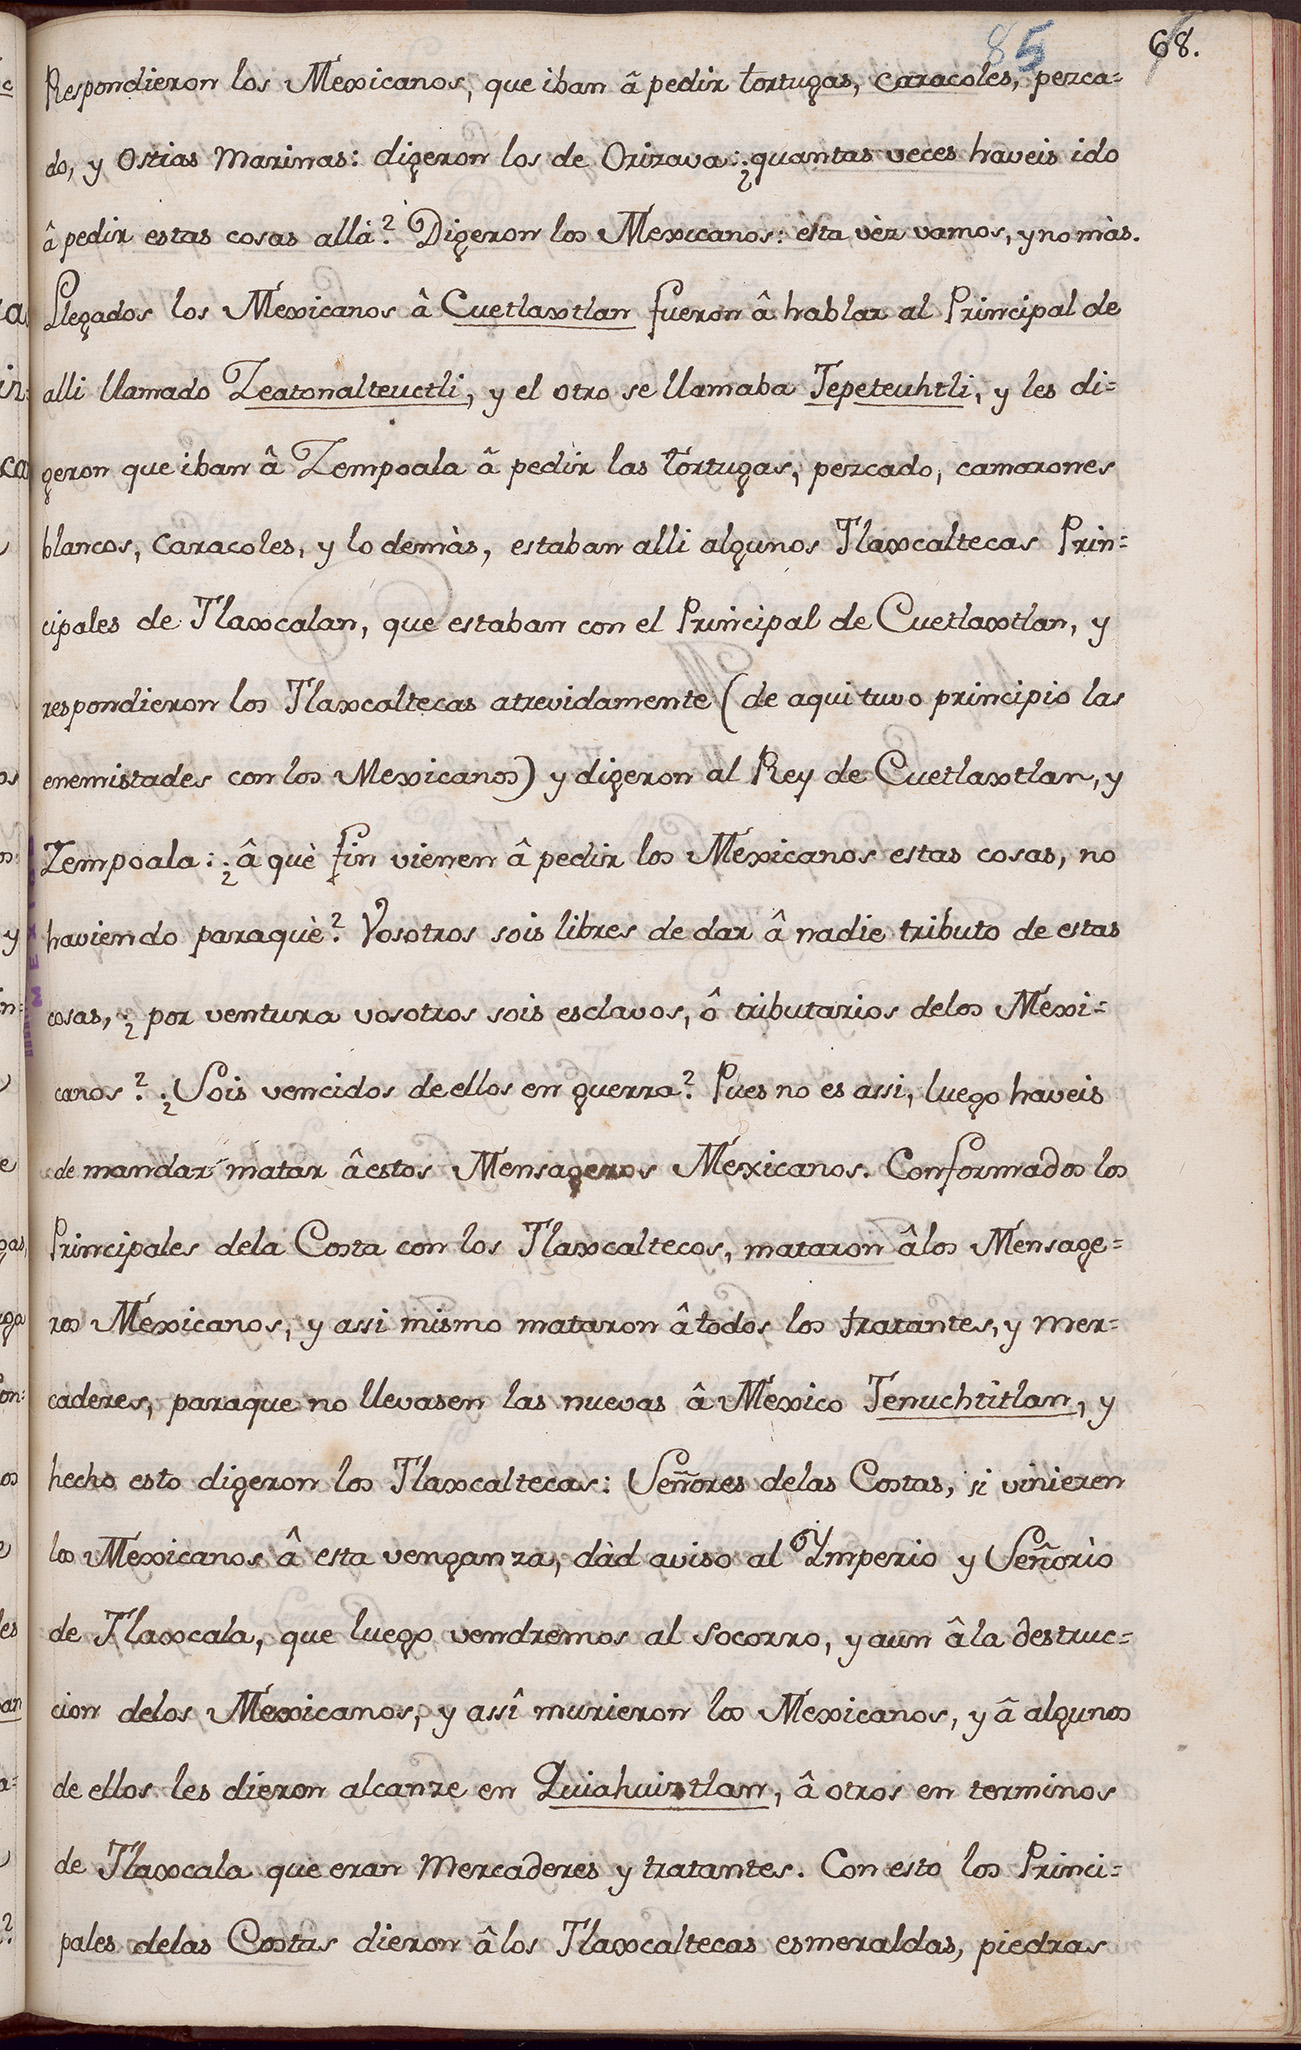 85 68.
Respondieron los Mexicanos, que iban â pedir tortugas, caracoles, pezca=
do, y Ostias Marinas: digeron los de Orizava: ¿quantas veces haveis ido
â pedir estas cosas allà? Digeron los Mexicanos: èsta vèz vamos, y no màs.
Llegados los Mexicanos â Cuetlaxtlan fueron â hablar al Principal de
alli llamado Zeatonalteuctli, y el otro se llamaba Tepeteuhtli, y les di=
geron que iban â Zempoala â pedir las tortugas, pezcado, camarones
blancos, caracoles, y lo demàs, estaban alli algunos Tlaxcaltecas Prin=
cipales de Tlaxcalan, que estaban con el Principal de Cuetlaxtlan, y
respondieron los Tlaxcaltecas atrevidamente (de aqui tuvo principio las
enemistades con los Mexicanos) y digeron al Rey de Cuetlaxtlan, y
Zempoala: ¿â què fin vienen â pedir los Mexicanos estas cosas, no
haviendo paraquè? Vosotros sois libres de dar â nadie tributo de estas
cosas, ¿por ventura vosotros sois esclavos, ô tributarios delos Mexi=
canos? ¿Sois vencidos de ellos en guerra? Pues no es assi, luego haveis
de mandar matar âestos Mensageros Mexicanos. Conformados los
Principales dela Costa con los Tlaxcaltecos, mataron âlos Mensage=
ros Mexicanos, y assi mismo mataron âtodos los tratantes, y Mer=
caderes, paraque no llevasen las nuevas â Mexico Tenuchtitlan, y
hecho esto digeron los Tlaxcaltecas: Señores delas Costas, si vinieren
los Mexicanos â esta venganza, dàd aviso al Ymperio y Señorìo
de Tlaxcala, que luego vendremos al socorro, y aun âla destruc=
cion delos Mexicanos, y assî murieron los Mexicanos, y â algunos
de ellos les dieron alcanze en Quiahuiztlan, â otros en terminos
de Tlaxcala que eran Mercaderes y tratantes. Con esto los Princi=
pales delas Costas dieron âlos Tlaxcaltecas esmeraldas, piedras